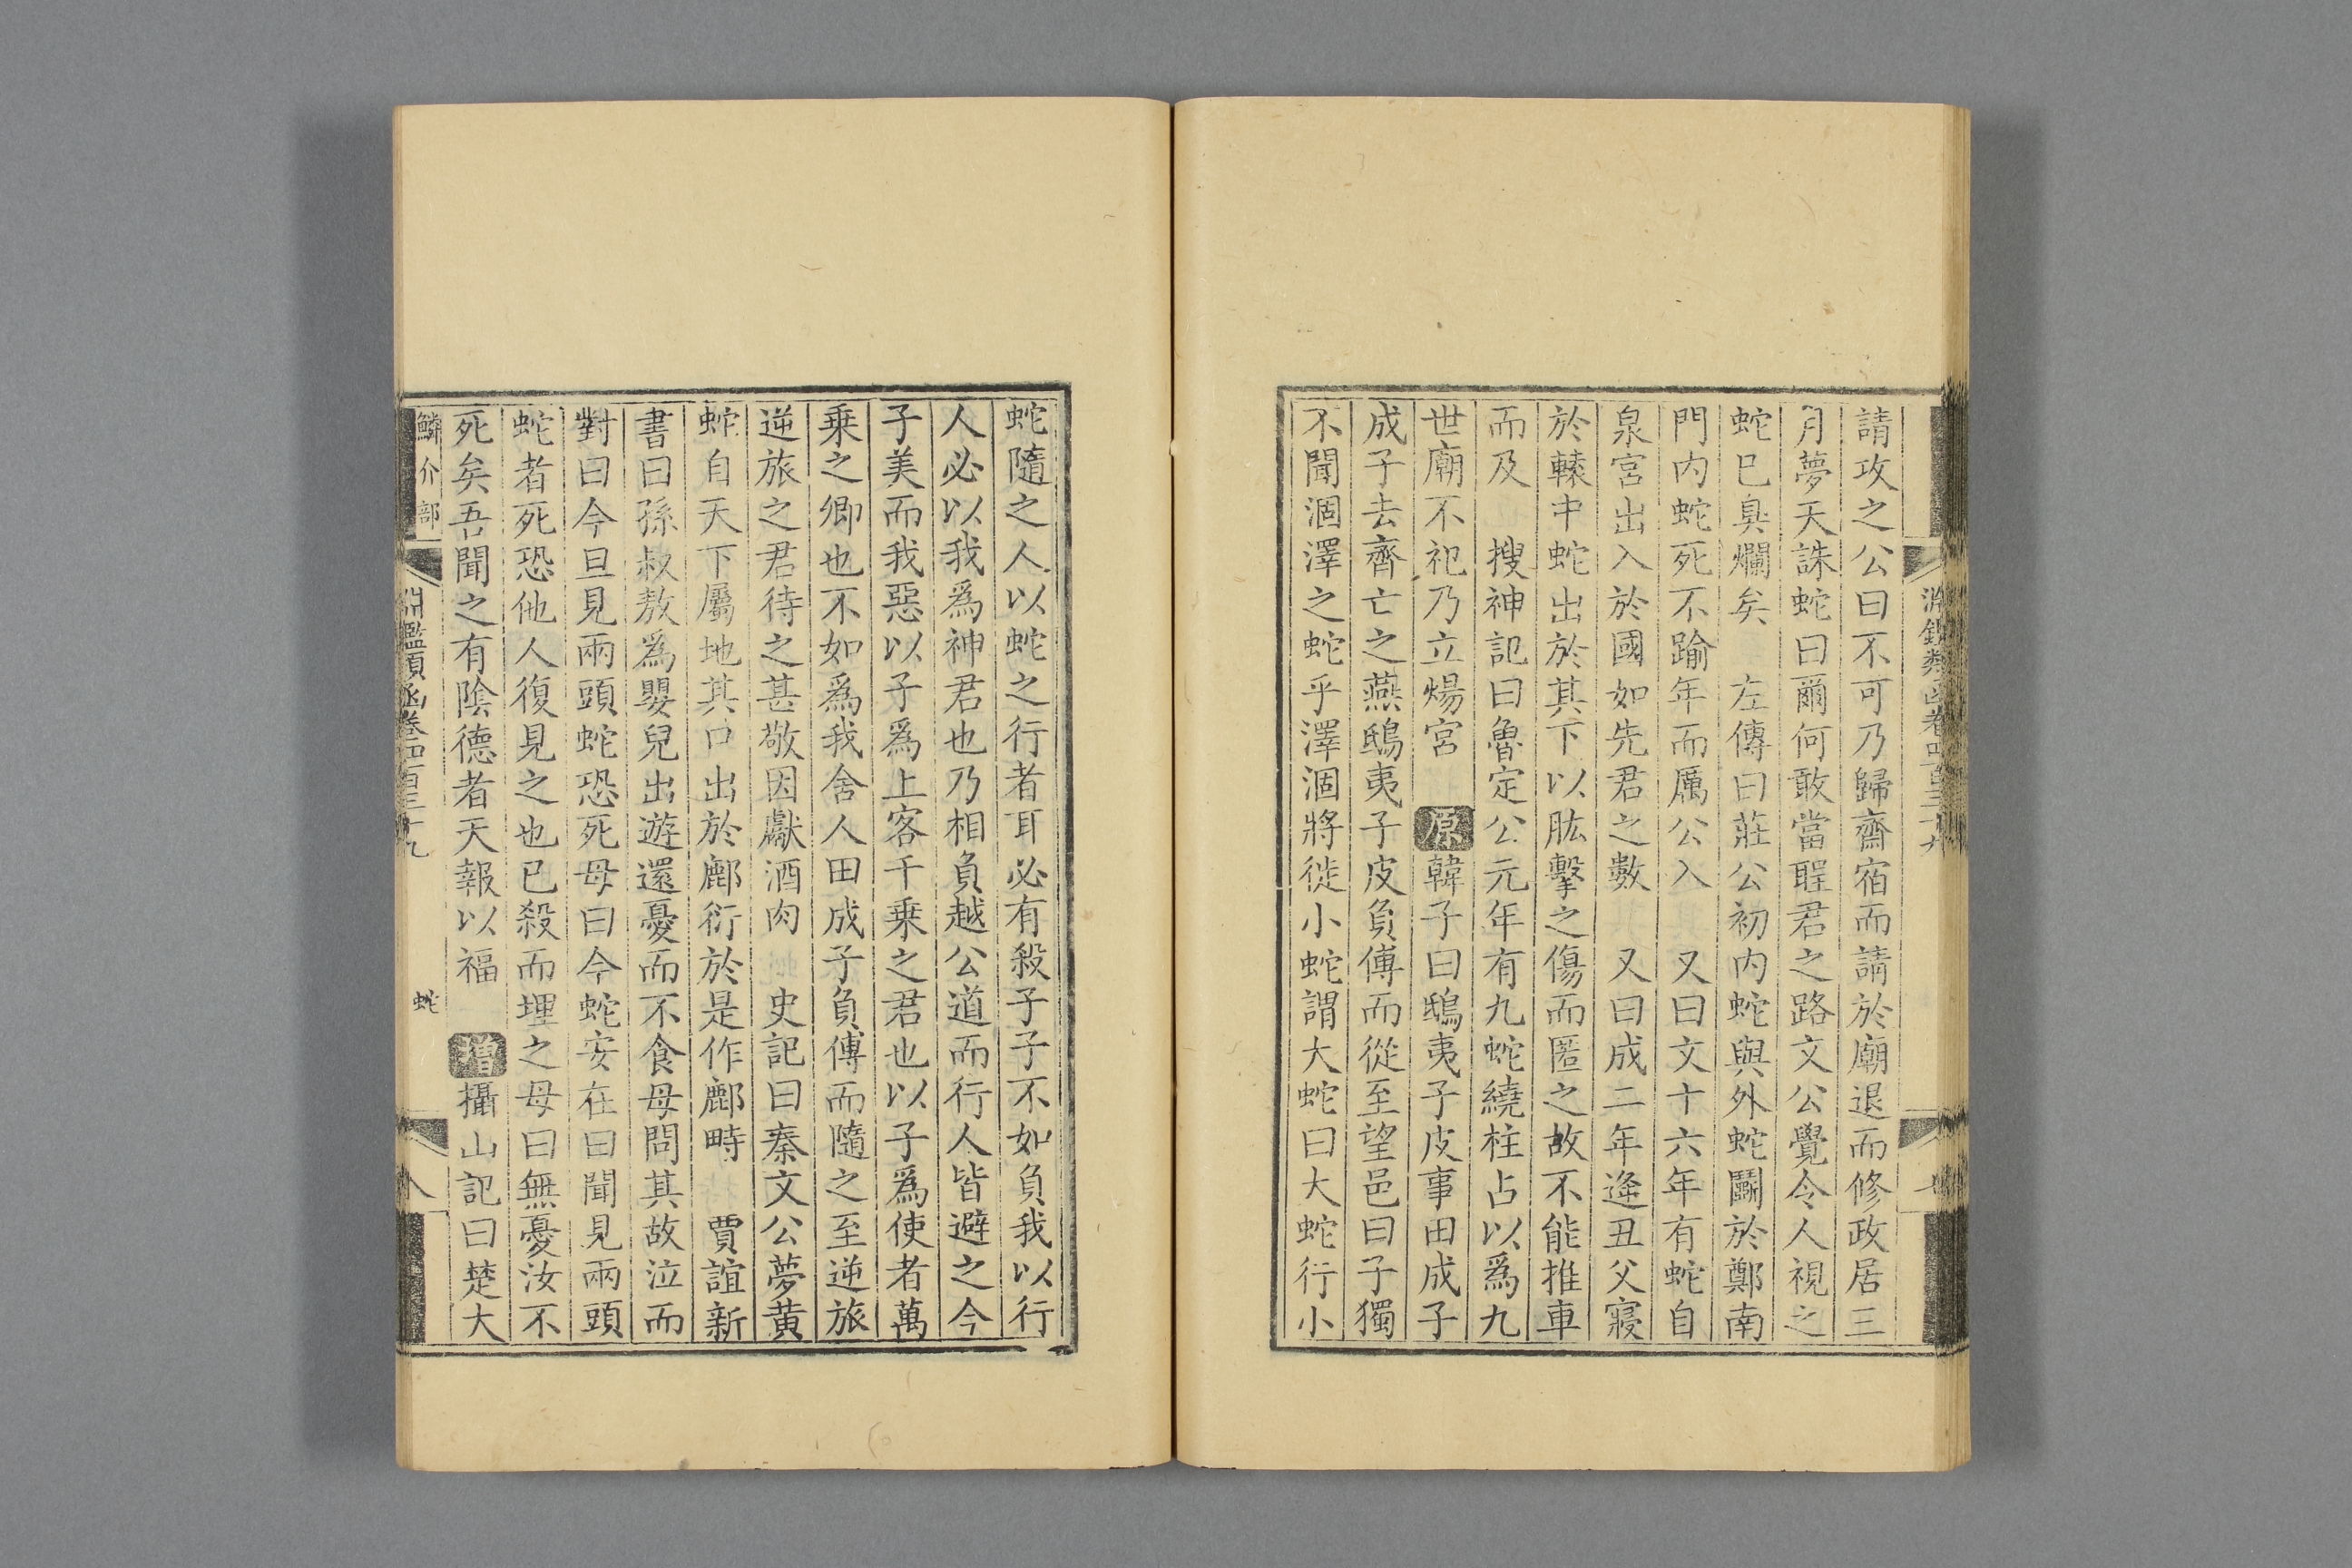 請攻之公曰不可乃歸齋宿而請於廟退而修政居三
月夢天誅蛇曰爾何敢當聖君之路文公覺令人視之
蛇已臭爛矣　左傳曰莊公初內蛇與外蛇鬭於鄭南
門內蛇死不踰年而厲公入　又曰文十六年有蛇自
泉宮出入於國如先君之數　又曰成二年逄丑父寢
於轏中蛇出於其下以肱擊之傷而匿之故不能推車
而及　搜神記曰魯定公元年有九蛇繞柱占以為九
世廟不祀乃立煬宮　原韓子曰鴟夷子皮事田成子
成子去齊亡之燕鴟夷子皮負傳而從至望邑曰子獨
不聞涸澤之蛇乎澤涸將徙小蛇謂大蛇曰大蛇行小
蛇隨之人以蛇之行者耳必有殺子子不如負我以行
人必以我為神君也乃相負越公道而行人皆避之今
子美而我惡以子為上客千乘之君也以子為使者萬
乘之卿也不如為我舍人田成子負傳而隨之至逆旅
逆旅之君待之甚敬因獻酒肉　史記曰秦文公夢黃
蛇自天下屬地其口出於鄜衍於是作鄜畤　賈誼新
書曰孫叔敖為嬰兒出遊還憂而不食母問其故泣而
對曰今旦見兩頭蛇恐死母曰今蛇安在曰聞見兩頭
蛇者死恐他人復見之也已殺而埋之母曰無憂汝不
死矣吾聞之有陰德者天報以福　增攝山記曰楚大
鱗介部
淵鑑類函卷四百三十九
蛇
八